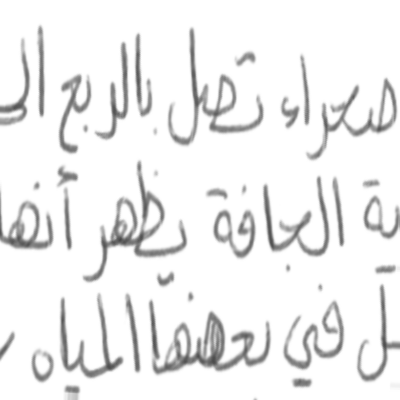 صحراء تصل بالربع الى
ية الجافة يظهر أنها
ل في بعضها المياه